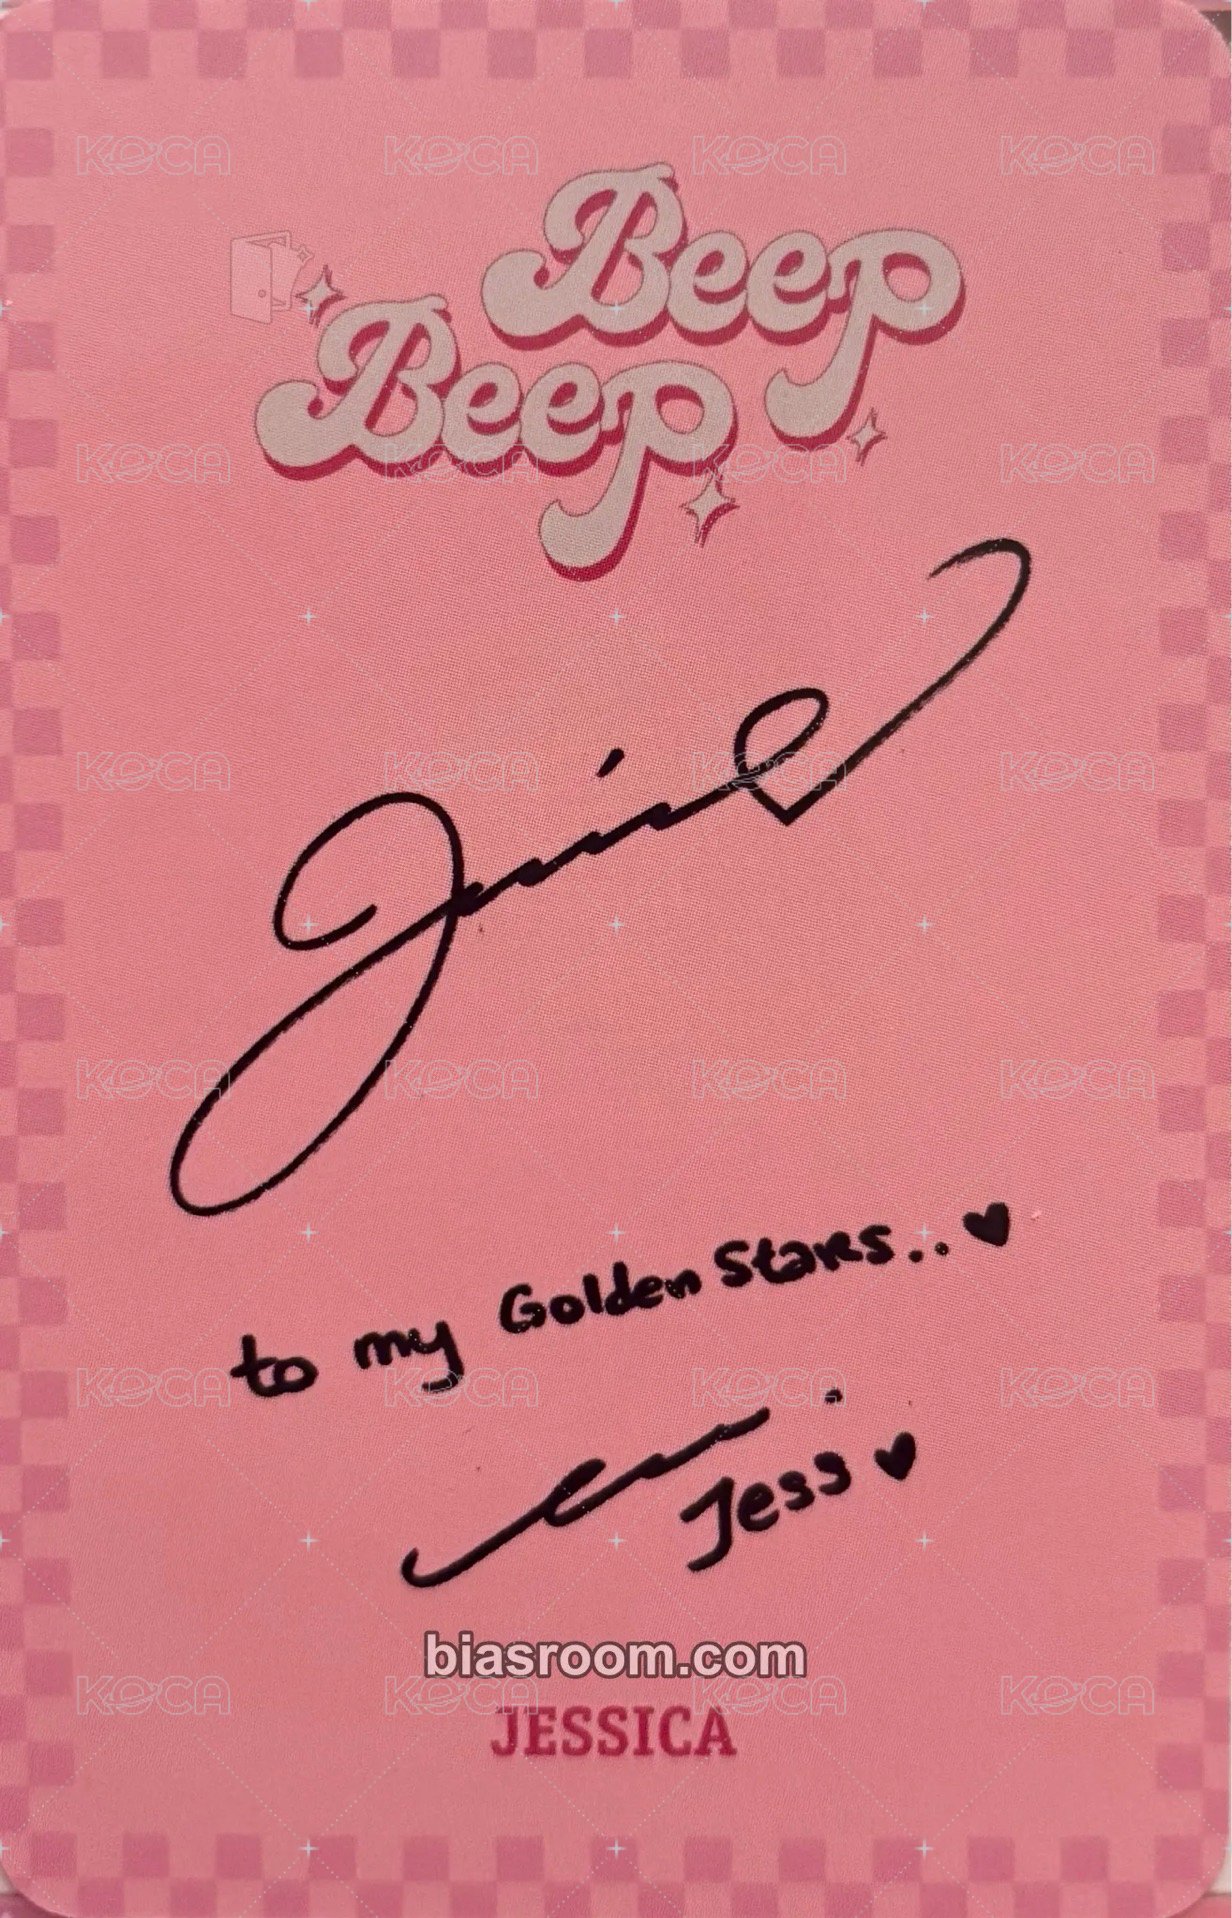 Beep
Beep
Jessica
to my Golden Stars.. ♥
Jess ♥
biasroom.com
JESSICA
KOCA KOCA KOCA KOCA
KOCA KOCA KOCA
KOCA KOCA KOCA KOCA
KOCA KOCA KOCA KOCA
KOCA KOCA KOCA KOCA
KOCA KOCA KOCA KOCA